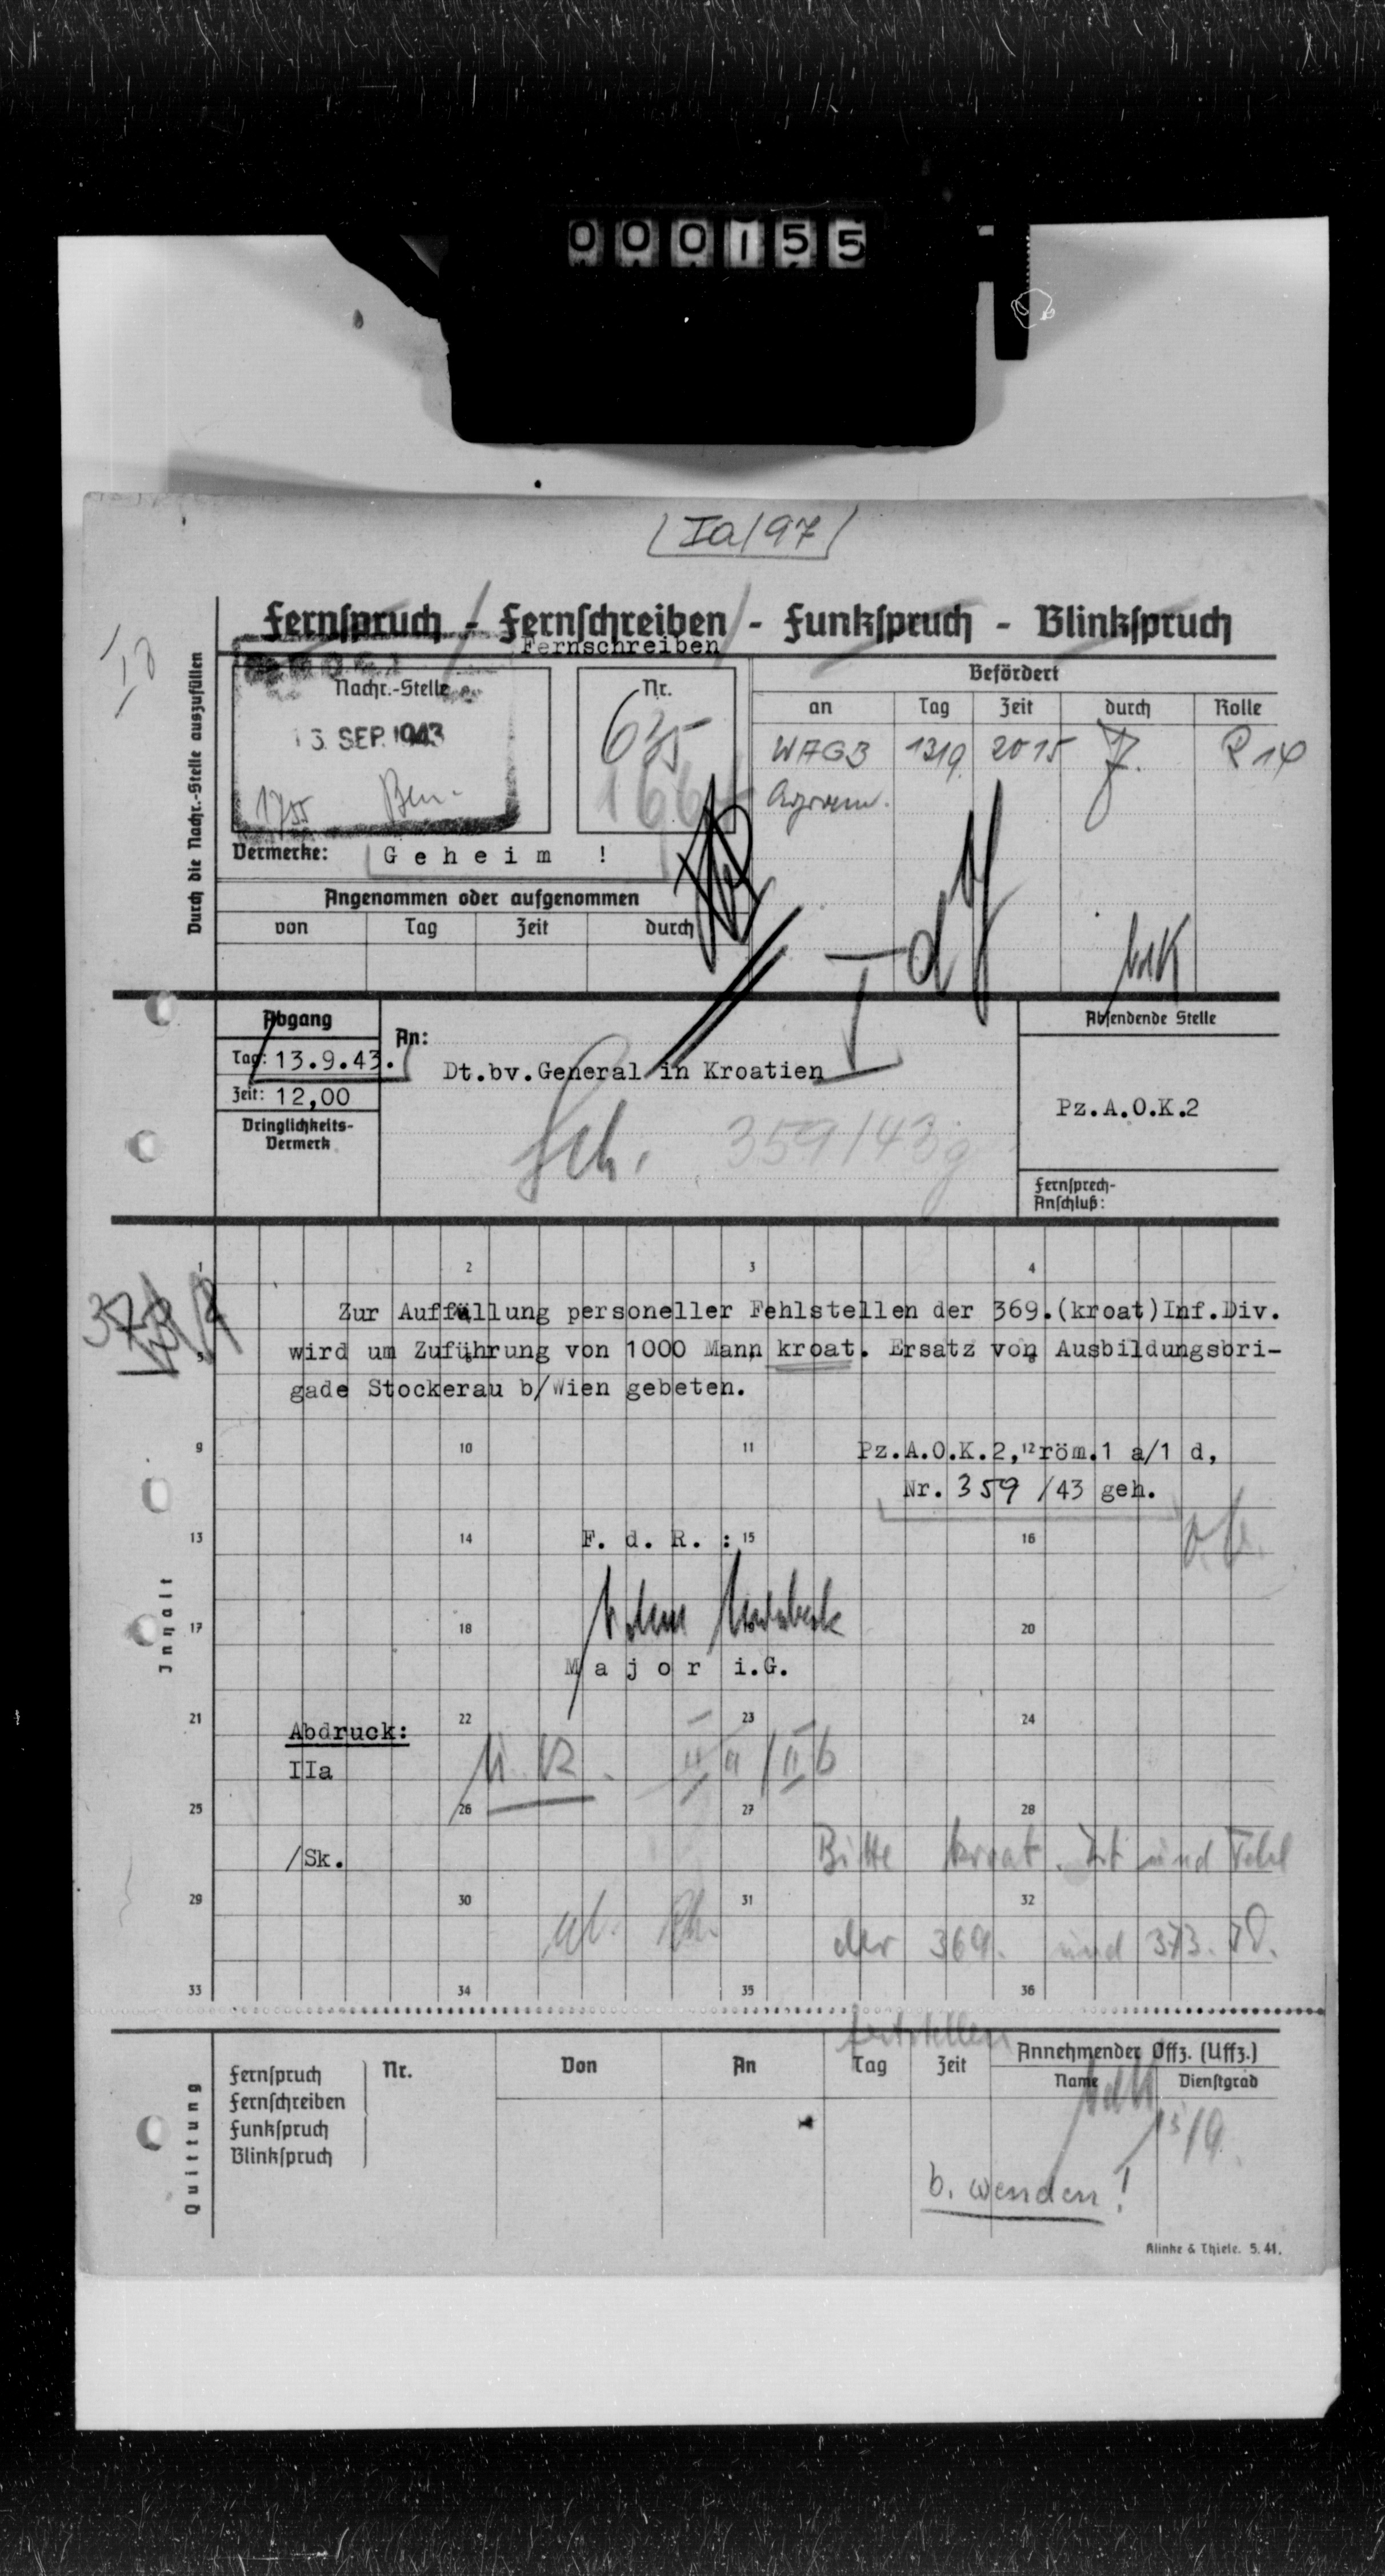 000155
Ia/97
Fernspruch - Fernschreiben - Funkspruch - Blinkspruch
Fernschreiben
Durch die Nachr.-Stelle auszufüllen
Nachr.-Stelle
13. SEP. 1943
1755
Nr.
635
Befördert
an Tag Zeit durch Rolle
WAGB 13/9. 2015
Agram.
Vermerke: Geheim !
Angenommen oder aufgenommen
von Tag Zeit durch
Id
Abgang
Tag: 13.9.43.
Zeit: 12,00
Dringlichkeits-
Vermerk
An:
Dt.bv.General in Kroatien
359/43 g
Absendende Stelle
Pz.A.O.K.2
Fernsprech-
Anschluß:
Inhalt
1 2 3 4
Zur Auffüllung personeller Fehlstellen der 369.(kroat)Inf.Div.
wird um Zuführung von 1000 Mann kroat. Ersatz von Ausbildungsbri-
gade Stockerau b/Wien gebeten.
9 10 11 12
Pz.A.O.K.2, röm.1 a/1 d,
Nr. 359 /43 geh.
13 14 15 16
F. d. R. :
17 18 20
Major i.G.
21 22 23 24
Abdruck:
IIa
IIa / IIb
25 26 27 28
/Sk.
Bitte kroat. Ist und Fehl
29 30 31 32
der 369. und 373. ID.
33 34 35 36
feststellen
Quittung
Fernspruch
Fernschreiben
Funkspruch
Blinkspruch
Nr. Von An Tag Zeit
Annehmender Offz. (Uffz.)
Name Dienstgrad
15/9.
b. wenden!
Klinke & Thiele. 5. 41.